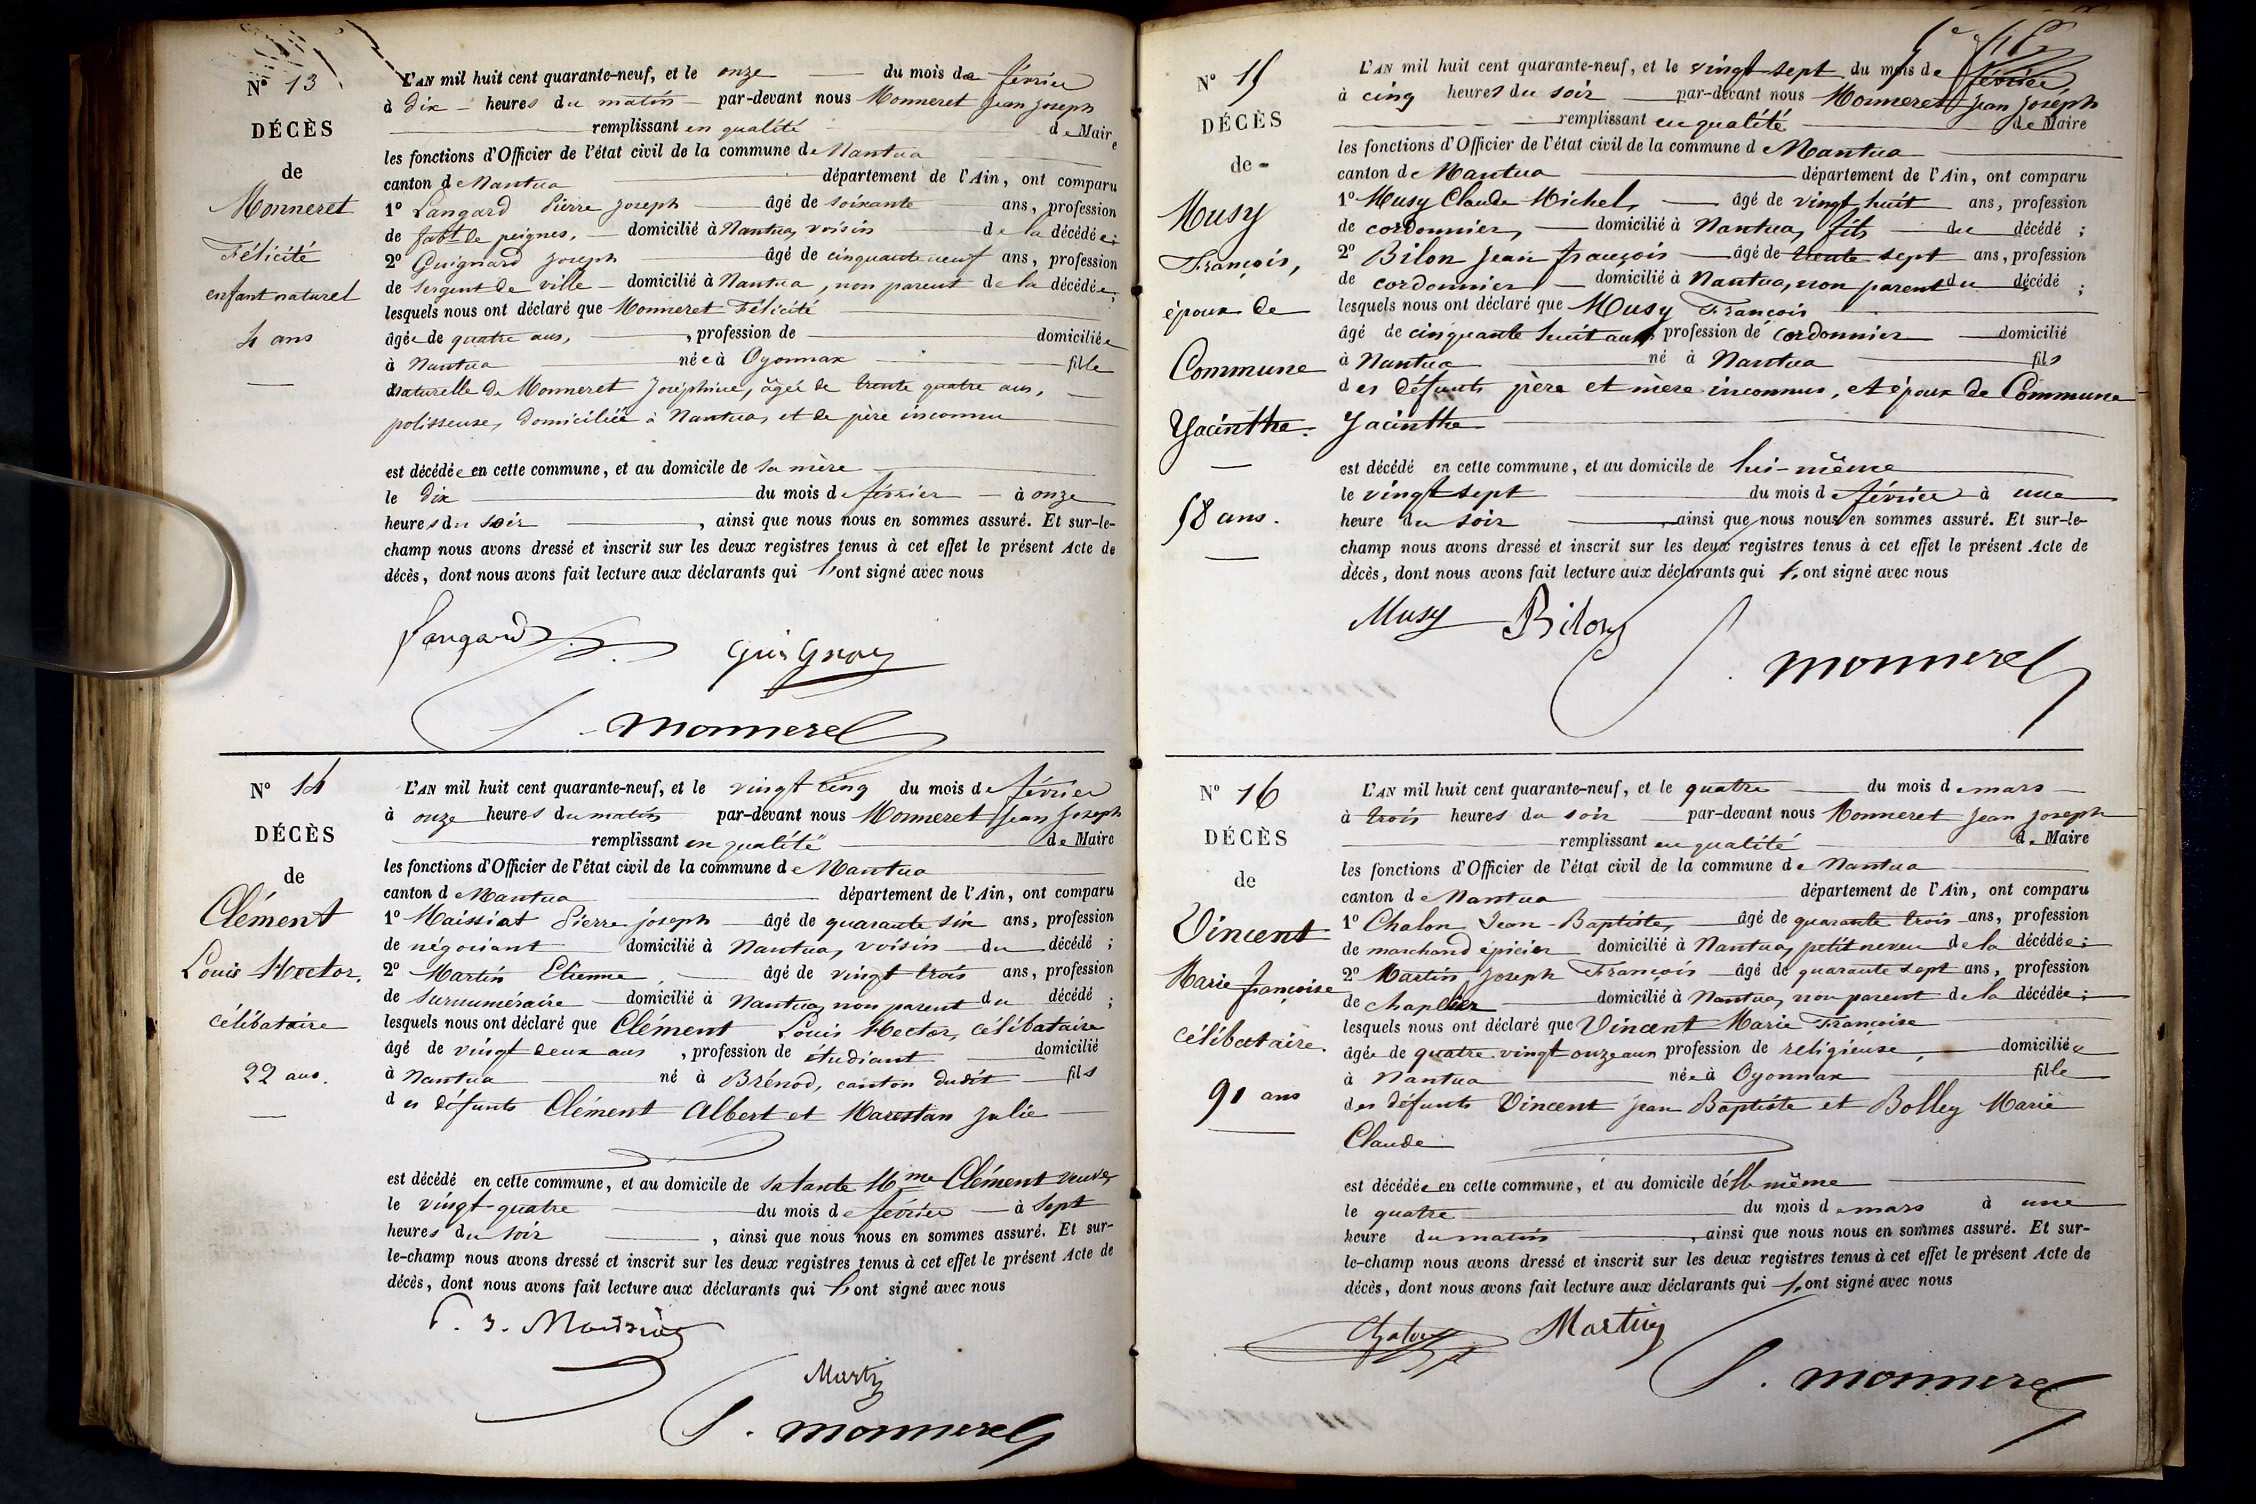 N° 13
DÉCÈS
de
Monneret
Félicité
enfant naturel
4 ans
L'AN mil huit cent quarante-neuf, et le onze du mois de février
à dix heures du matin par-devant nous Monneret Jean Joseph
remplissant en qualité de Maire
les fonctions d'Officier de l'état civil de la commune de Nantua
canton de Nantua département de l'Ain, ont comparu
1° Langard Pierre Joseph âgé de soixante ans, profession
de fabt de peignes, domicilié à Nantua, voisin de la décédée;
2° Guignard Joseph âgé de cinquante neuf ans, profession
de sergent de ville domicilié à Nantua, non parent de la décédée;
lesquels nous ont déclaré que Monneret Félicité
âgée de quatre ans, , profession de domiciliée
à Nantua née à Oyonnax fille
naturelle de Monneret Joséphine, âgée de trente quatre ans,
polisseuse, domiciliée à Nantua, et de père inconnu
est décédée en cette commune, et au domicile de sa mère
le dix du mois de février à onze
heures du soir , ainsi que nous nous en sommes assuré. Et sur-le-
champ nous avons dressé et inscrit sur les deux registres tenus à cet effet le présent Acte de
décès, dont nous avons fait lecture aux déclarants qui l'ont signé avec nous
Langard
Guignard
J. Monneret
N° 14
DÉCÈS
de
Clément
Louis Hector,
célibataire
22 ans.
L'AN mil huit cent quarante-neuf, et le vingt cinq du mois de février
à onze heures du matin par-devant nous Monneret Jean Joseph
remplissant en qualité de Maire
les fonctions d'Officier de l'état civil de la commune de Nantua
canton de Nantua département de l'Ain, ont comparu
1° Maissiat Pierre Joseph âgé de quarante six ans, profession
de négociant domicilié à Nantua, voisin du décédé;
2° Martin Etienne âgé de vingt trois ans, profession
de surnuméraire domicilié à Nantua, non parent du décédé;
lesquels nous ont déclaré que Clément Louis Hector, célibataire
âgé de vingt deux ans , profession de étudiant domicilié
à Nantua né à Brénod, canton dudit fils
des défunts Clément Albert et Marestan Julie
est décédé en cette commune, et au domicile de sa tante Mme Clément veuve,
le vingt-quatre du mois de février à sept
heures du soir , ainsi que nous nous en sommes assuré. Et sur-
le-champ nous avons dressé et inscrit sur les deux registres tenus à cet effet le présent Acte de
décès, dont nous avons fait lecture aux déclarants qui l'ont signé avec nous
P. J. Maissiat
Martin
J. Monneret
N° 15
DÉCÈS
de
Musy
François,
époux de
Commune
Yacinthe.
58 ans.
L'AN mil huit cent quarante-neuf, et le vingt sept du mois de février
à cinq heures du soir par-devant nous Monneret Jean Joseph
remplissant en qualité de Maire
les fonctions d'Officier de l'état civil de la commune d Nantua
canton de Nantua département de l'Ain, ont comparu
1° Musy Claude Michel, âgé de vingt huit ans, profession
de cordonnier, domicilié à Nantua, fils du décédé;
2° Bilon Jean François âgé de trente sept ans, profession
de cordonnier domicilié à Nantua, non parent du décédé;
lesquels nous ont déclaré que Musy François
âgé de cinquante huit ans, profession de cordonnier domicilié
à Nantua né à Nantua fils
des défunts père et mère inconnus, et époux de Commune
Yacinthe
est décédé en cette commune, et au domicile de lui-même
le vingt sept du mois de février à une
heure du soir , ainsi que nous nous en sommes assuré. Et sur-le-
champ nous avons dressé et inscrit sur les deux registres tenus à cet effet le présent Acte de
décès, dont nous avons fait lecture aux déclarants qui l'ont signé avec nous
Musy Bilon
J. Monneret
N° 16
DÉCÈS
de
Vincent
Marie Françoise
célibataire.
91 ans
L'AN mil huit cent quarante-neuf, et le quatre du mois de mars
à trois heures du soir par-devant nous Monneret Jean Joseph
remplissant en qualité de Maire
les fonctions d'Officier de l'état civil de la commune de Nantua
canton de Nantua département de l'Ain, ont comparu
1° Chalon Jean-Baptiste, âgé de quarante trois ans, profession
de marchand épicier domicilié à Nantua, petit neveu de la décédée;
2° Martin Joseph François âgé de quarante sept ans, profession
de chapelier domicilié à Nantua, non parent de la décédée;
lesquels nous ont déclaré que Vincent Marie Françoise
âgée de quatre vingt onze ans profession de religieuse, domiciliée
à Nantua née à Oyonnax fille
des défunts Vincent Jean Baptiste et Bolley Marie
Claude
est décédée en cette commune, et au domicile d'elle même
le quatre du mois de mars à une
heure du matin , ainsi que nous nous en sommes assuré. Et sur-
le-champ nous avons dressé et inscrit sur les deux registres tenus à cet effet le présent Acte de
décès, dont nous avons fait lecture aux déclarants qui l'ont signé avec nous
Chalon Martin
J. Monneret